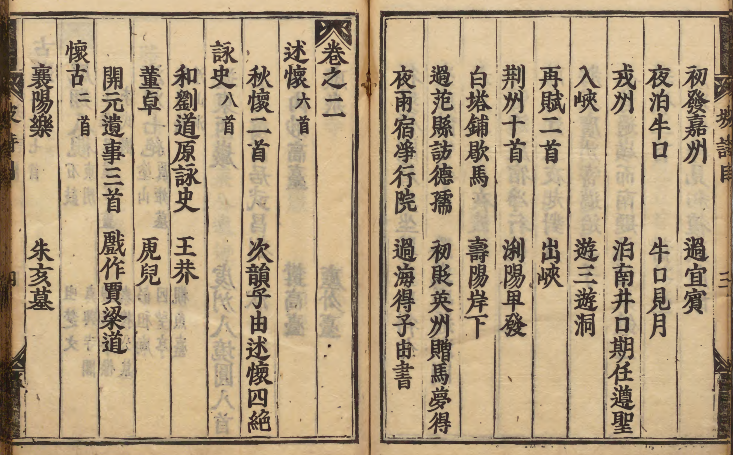 初發嘉州　過宜賓
夜泊牛口　牛口見月
戎州　泊南井口期任遵聖
入峽　遊三遊洞
再賦二首　出峽
荆州十首　浰陽早發
白塔鋪歇馬　壽陽岸下
過范縣訪德孺　初貶英州贈馬夢得
夜雨宿凈行院　過海得子由書
卷之二
述懷六首
秋懷二首　次韻子由述懷四絶
詠史八首
和劉道原詠史　王莽
董卓　虎兒
開元遺事三首　戲作賈梁道
懷古二首
襄陽樂　朱亥墓